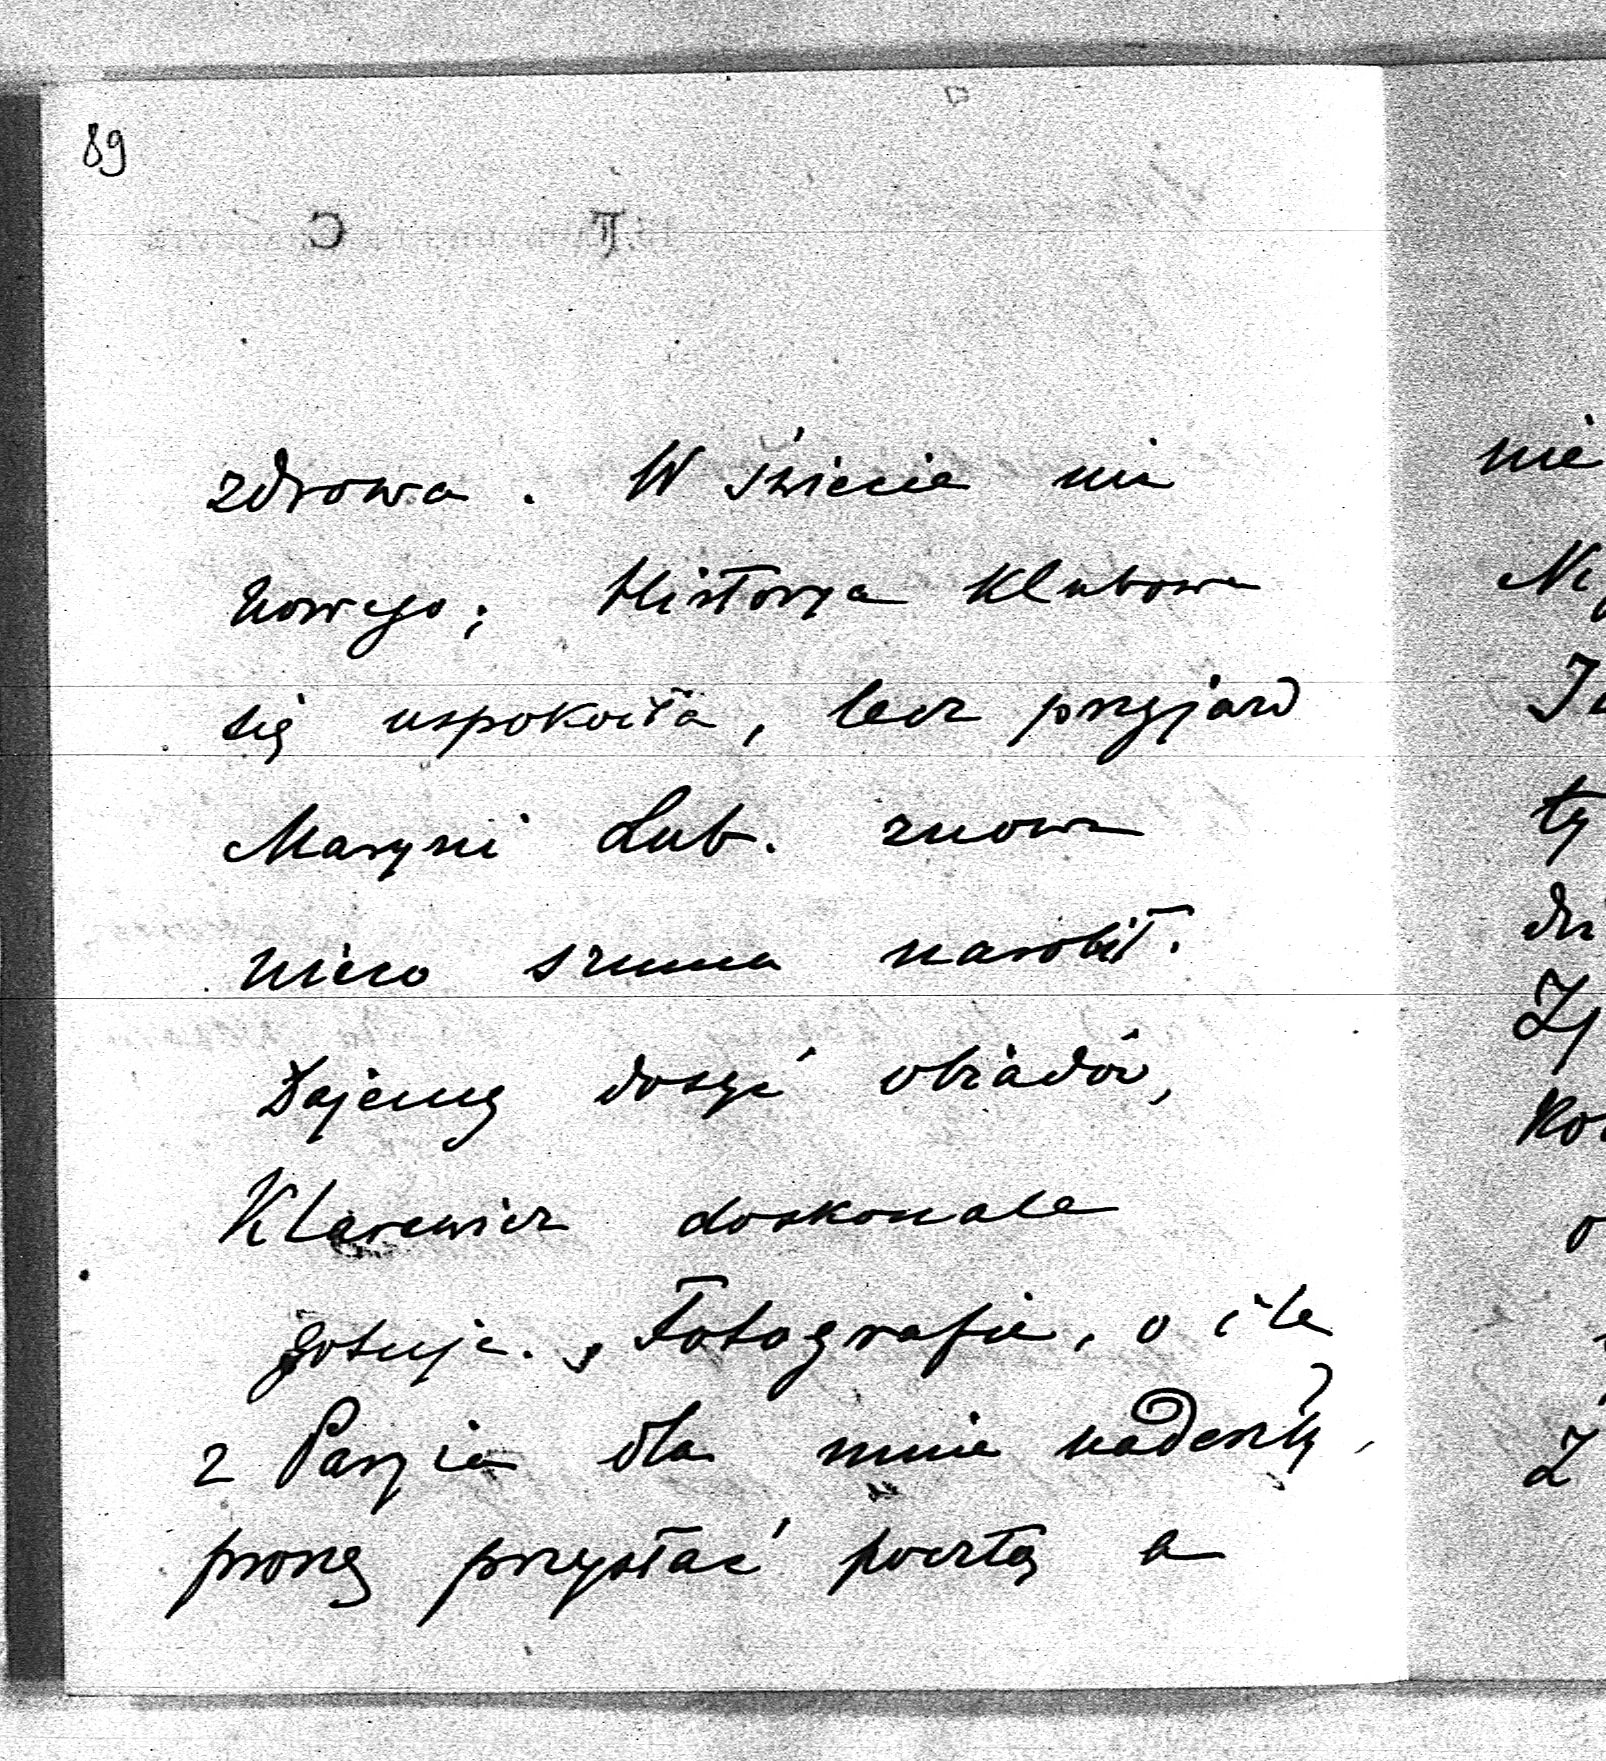 89
zdrowa. W świecie nic
nowego; Historya Klubowa
się uspokoiła, lecz przyjazd
Maryni Lub. znowu
nieco szumu narobił.
Dajemy dosyć obiadów,
Klarewicz doskonale
gotuje. Fotografie, o ile
z Paryża dla mnie nadeszły,
proszę przysłać pocztą a
nie